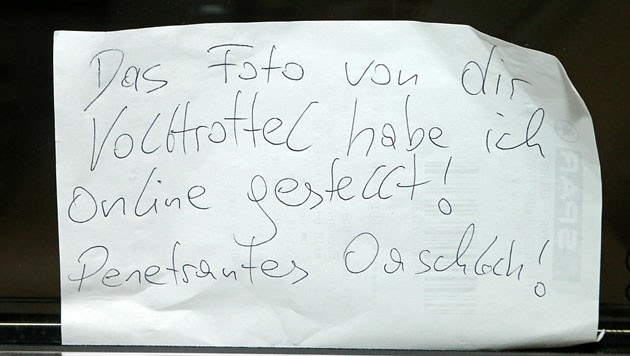 Das Foto von dir
Volltrottel habe ich
Online gestellt!
Penetrantes Oaschloch!